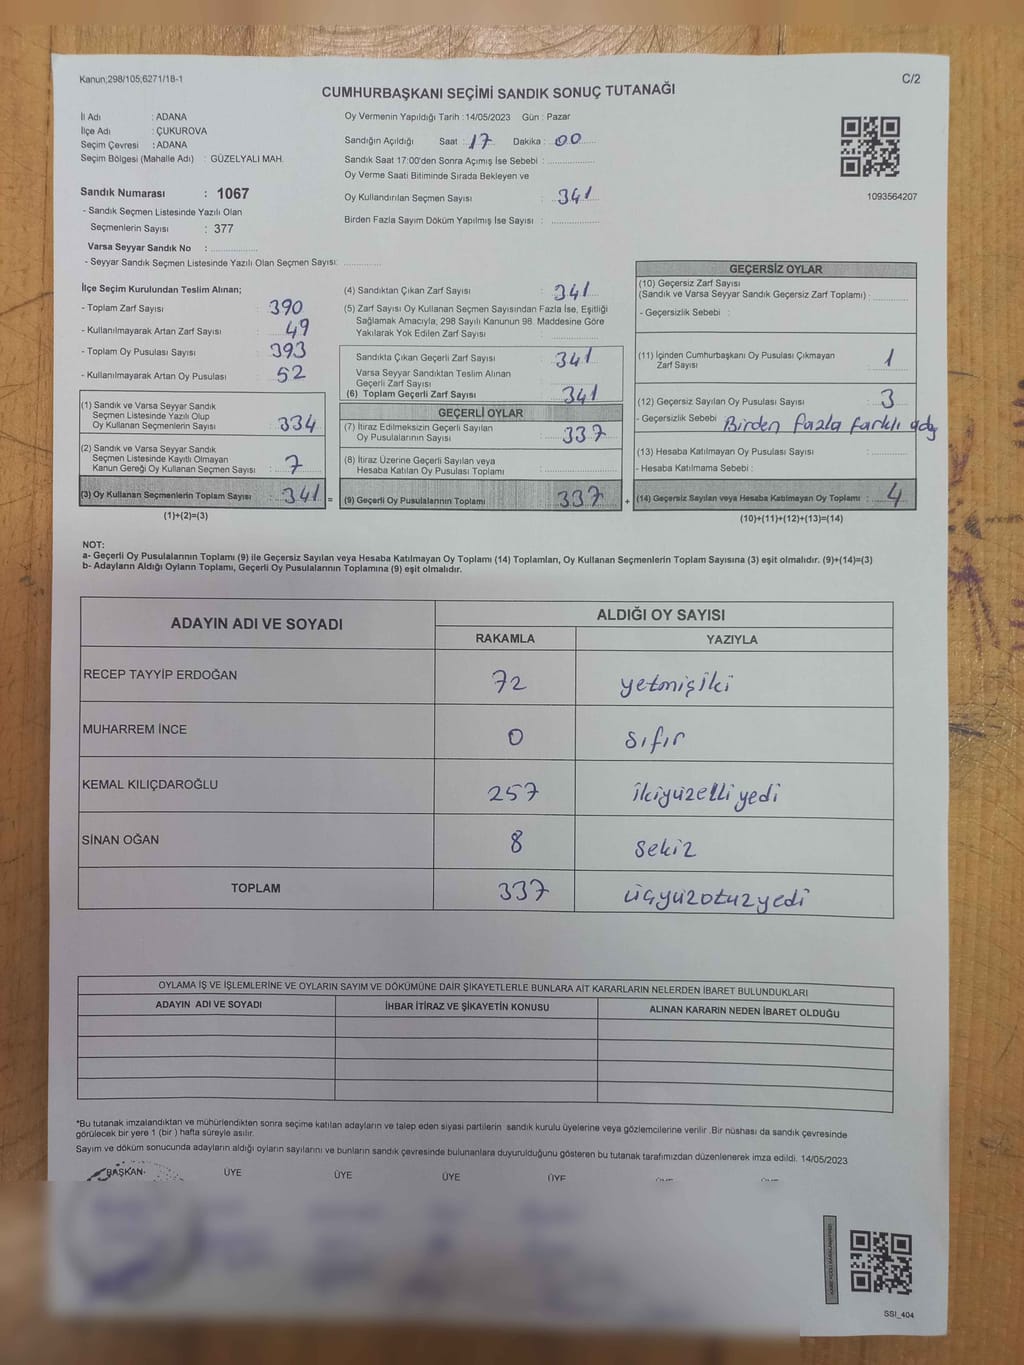 Kanun;298/105;6271/18-1
C/2
CUMHURBAŞKANI SEÇİMİ SANDIK SONUÇ TUTANAĞI
İl Adı : ADANA
İlçe Adı : ÇUKUROVA
Seçim Çevresi : ADANA
Seçim Bölgesi (Mahalle Adı) : GÜZELYALI MAH.
Sandık Numarası : 1067
- Sandık Seçmen Listesinde Yazılı Olan
Seçmenlerin Sayısı : 377
Varsa Seyyar Sandık No : ....................
- Seyyar Sandık Seçmen Listesinde Yazılı Olan Seçmen Sayısı: ..............
Oy Vermenin Yapıldığı Tarih : 14/05/2023 Gün : Pazar
Sandığın Açıldığı Saat : 17 Dakika : 00
Sandık Saat 17:00'den Sonra Açımış İse Sebebi : ................
Oy Verme Saati Bitiminde Sırada Bekleyen ve
Oy Kullandırılan Seçmenin Sayısı : 341
Birden Fazla Sayım Döküm Yapılmış İse Sayısı : ................
1093564207
İlçe Seçim Kurulundan Teslim Alınan;
- Toplam Zarf Sayısı : 390
- Kullanılmayarak Artan Zarf Sayısı : 49
- Toplam Oy Pusulası Sayısı : 393
- Kullanılmayarak Artan Oy Pusulası : 52
(1) Sandık ve Varsa Seyyar Sandık
Seçmen Listesinde Yazılı Olup
Oy Kullanan Seçmenlerin Sayısı : 334
(2) Sandık ve Varsa Seyyar Sandık
Seçmen Listesinde Kayıtlı Olmayan
Kanun Gereği Oy Kullanan Seçmen Sayısı : 7
(3) Oy Kullanan Seçmenlerin Toplam Sayısı : 341 =
(1)+(2)=(3)
(4) Sandıktan Çıkan Zarf Sayısı : 341
(5) Zarf Sayısı Oy Kullanan Seçmen Sayısından Fazla İse, Eşitliği
Sağlamak Amacıyla; 298 Sayılı Kanunun 98. Maddesine Göre
Yakılarak Yok Edilen Zarf Sayısı : ................
Sandıkta Çıkan Geçerli Zarf Sayısı : 341
Varsa Seyyar Sandıktan Teslim Alınan
Geçerli Zarf Sayısı : ................
(6) Toplam Geçerli Zarf Sayısı : 341
GEÇERLİ OYLAR
(7) İtiraz Edilmeksizin Geçerli Sayılan
Oy Pusulalarının Sayısı : 337
(8) İtiraz Üzerine Geçerli Sayılan veya
Hesaba Katılan Oy Pusulası Toplamı : ................
(9) Geçerli Oy Pusulalarının Toplamı : 337 +
GEÇERSİZ OYLAR
(10) Geçersiz Zarf Sayısı
(Sandık ve Varsa Seyyar Sandık Geçersiz Zarf Toplamı) : ............
- Geçersizlik Sebebi :
(11) İçinden Cumhurbaşkanı Oy Pusulası Çıkmayan
Zarf Sayısı : 1
(12) Geçersiz Sayılan Oy Pusulası Sayısı : 3
- Geçersizlik Sebebi : Birden fazla farklı
(13) Hesaba Katılmayan Oy Pusulası Sayısı : ............
- Hesaba Katılmama Sebebi :
(14) Geçersiz Sayılan veya Hesaba Katılmayan Oy Toplamı : 4
(10)+(11)+(12)+(13)=(14)
NOT:
a- Geçerli Oy Pusulalarının Toplamı (9) ile Geçersiz Sayılan veya Hesaba Katılmayan Oy Toplamı (14) Toplamları, Oy Kullanan Seçmenlerin Toplam Sayısına (3) eşit olmalıdır. (9)+(14)=(3)
b- Adayların Aldığı Oyların Toplamı, Geçerli Oy Pusulalarının Toplamına (9) eşit olmalıdır.
ADAYIN ADI VE SOYADI ALDIĞI OY SAYISI
RAKAMLA YAZIYLA
RECEP TAYYİP ERDOĞAN 72 yetmişiki
MUHARREM İNCE 0 sıfır
KEMAL KILIÇDAROĞLU 257 ikiyüzelliyedi
SİNAN OĞAN 8 sekiz
TOPLAM 337 üçyüzotuzyedi
OYLAMA İŞ VE İŞLEMLERİNE VE OYLARIN SAYIM VE DÖKÜMÜNE DAİR ŞİKAYETLERLE BUNLARA AİT KARARLARIN NELERDEN İBARET BULUNDUKLARI
ADAYIN ADI VE SOYADI İHBAR İTİRAZ VE ŞİKAYETİN KONUSU ALINAN KARARIN NEDEN İBARET OLDUĞU
*Bu tutanak imzalandıktan ve mühürlendikten sonra seçime katılan adayların ve talep eden siyasi partilerin sandık kurulu üyelerine veya gözlemcilerine verilir .Bir nüshası da sandık çevresinde
görülecek bir yere 1 (bir ) hafta süreyle asılır.
Sayım ve döküm sonucunda adayların aldığı oyların sayılarını ve bunların sandık çevresinde bulunanlara duyurulduğunu gösteren bu tutanak tarafımızdan düzenlenerek imza edildi. 14/05/2023
BAŞKAN ÜYE ÜYE ÜYE ÜYE
SSI_404